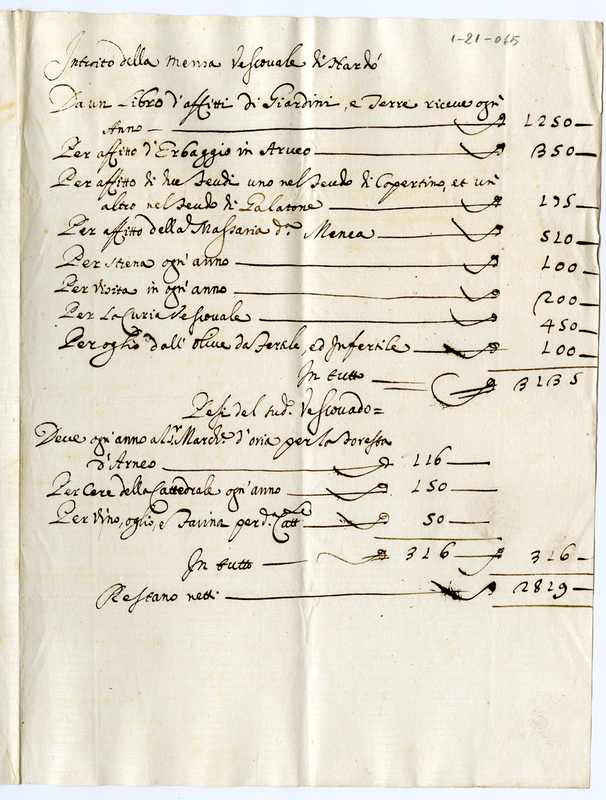 1-21-065
Introito della Mensa Vescovale di Nardó
Da un Libro d'affitti di Giardini, e Terre riceve ogn'
Anno 1250
Per affitto d'Erbaggio in Arneo 350
Per affitto di due Feudi uno nel Feudo di Copertino, et un'
altro nel Feudo di Galatone 195
Per affitto della Massaria d.ª Menea 510
Per Strena ogn'anno 100
Per Visita in ogn'anno 200
Per La Curia Vescovale 450
Per oglio dall'olive da Fertile, ed Infertile 100
In tutto 3135
Pesi del sud.º Vescovado=
Deve ogn'anno al S.r March.e d'oria per la Foresta
d'Arneo 116
Per Cere della Cattedrale ogn'anno 150
Per Vino, oglio, e Farina per d.ª Catt.le 50
In tutto 316 316
Restano netti 2819